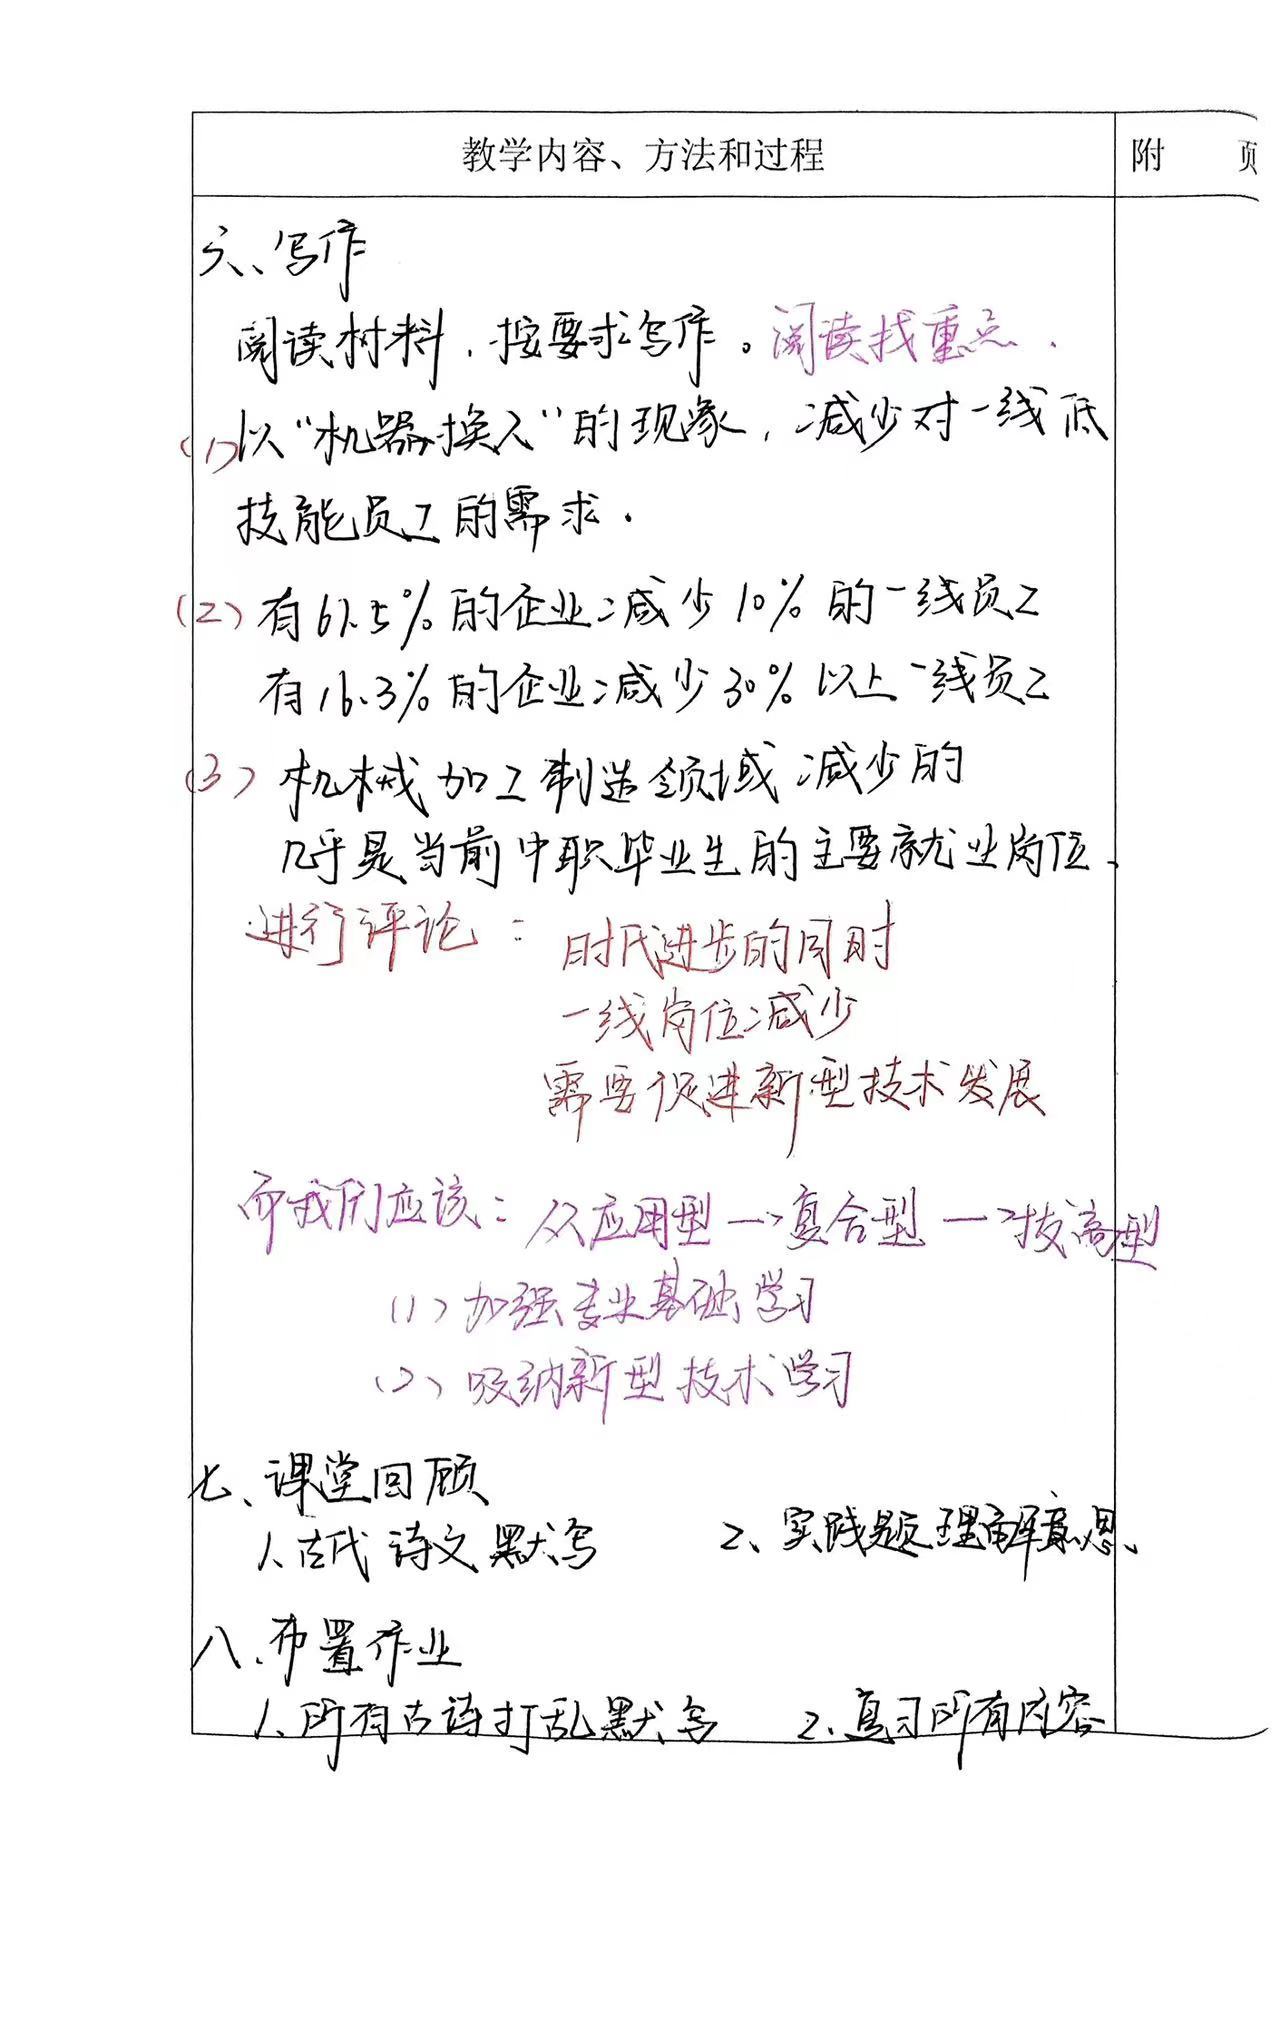 教学内容、方法和过程
附 页
六、写作
阅读材料，按要求写作。阅读找重点.
(1)以“机器换人”的现象，减少对一线低
技能员工的需求.
(2)有61.5%的企业减少10%的一线员工
有16.3%的企业减少30%以上一线员工
(3)机械加工制造领域减少的
几乎是当前中职毕业生的主要就业岗位、
进行评论：时代进步的同时
一线岗位减少
需要促进新型技术发展
而我们应该：从应用型→复合型→拔高型
(1)加强专业基础学习
(2)吸纳新型技术学习
七、课堂回顾
1、古代诗文默写 2、实践题理解意思、
八、布置作业
1、所有古诗打乱默写 2、复习所有内容